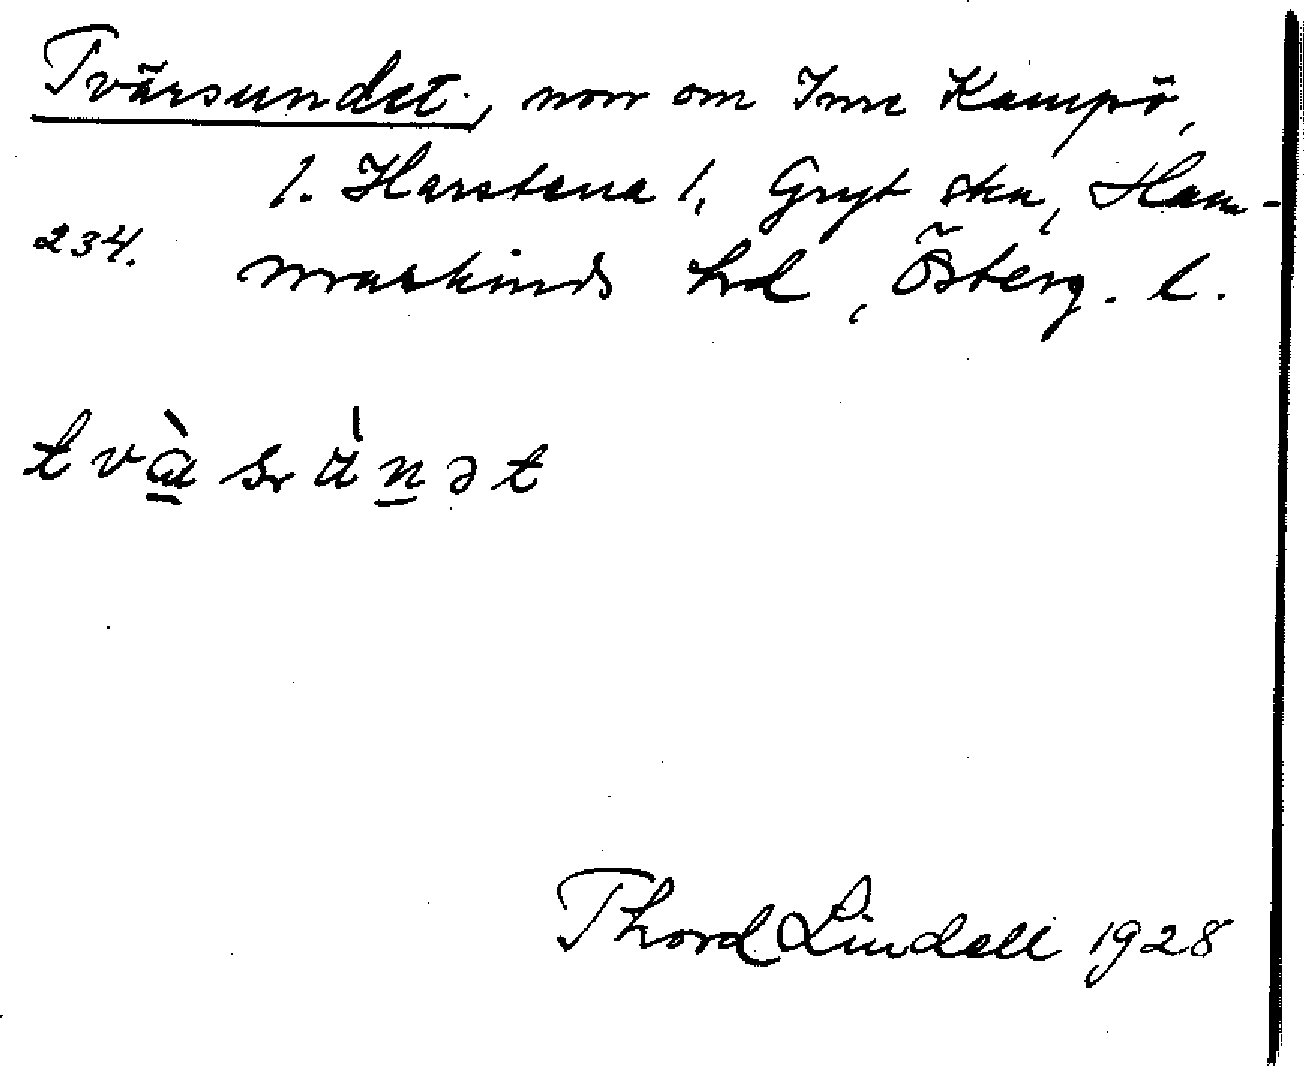 Tvärsundet, norr om Inre Kampö,
l. Harstena l, Gryt skn, Ham-
234. markinds hrd, Österg. l.
tvæ̀sùnət
Thord Lindell 1928